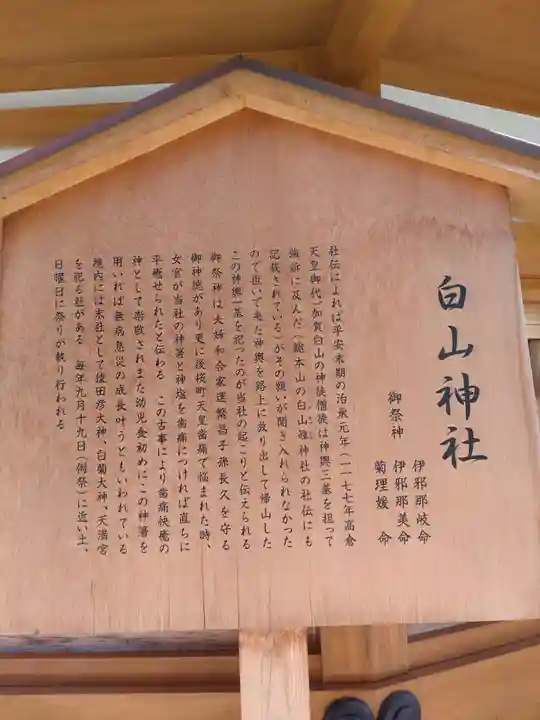 白山神社
御祭神
伊邪那岐命
伊邪那美命
菊理媛 命
社伝によれば平安末期の治承元年(一一七七年高倉
天皇御代)加賀白山の神徒僧徒は神輿三基を担って
強訴に及んだ(総本山の白山比咩神社の社伝にも
記載されている)がその願いが聞き入れられなかった
ので担いで来た神輿を路上に放り出して帰山した
この神輿一基を祀ったのが当社の起こりと伝えられる
御祭神は夫婦和合家運繁昌子孫長久を守る
御神徳があり更に後桜町天皇歯痛で悩まれた時、
女官が当社の神箸と神塩を歯痛につければ直ちに
平癒せられたと伝わる この古事により歯痛快癒の
神として崇敬されまた幼児食初めにこの神箸を
用いれば無病息災の成長叶うともいわれている
境内には末社として猿田彦大神、白菊大神、天満宮
を祀る社がある 毎年九月十九日(例祭)に近い土、
日曜日に祭りが執り行われる